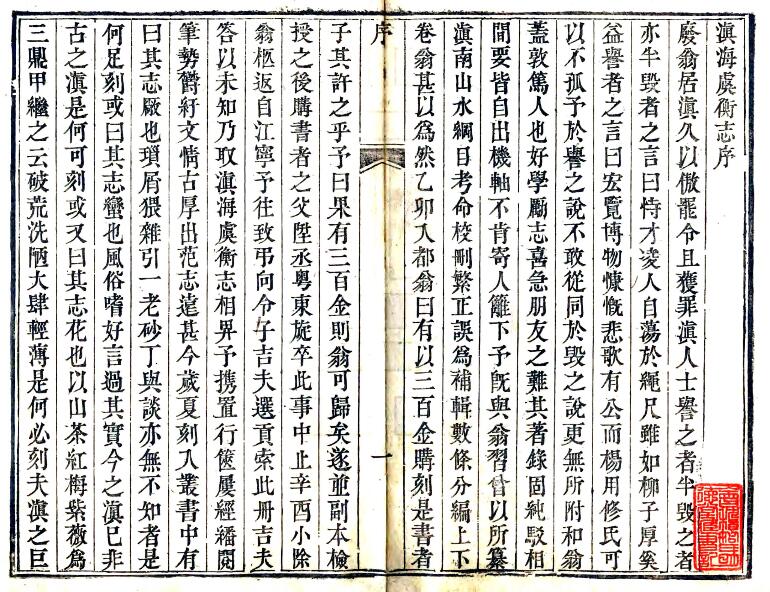 滇海虞衡志序
廢翁居滇久以傲罷令且獲罪滇人士譽之者半毀之者
亦半毀者之言曰恃才凌人自蕩於繩尺雖如柳子厚奚
益譽者之言曰宏覽博物慷慨悲歌有公而楊用修氏可
以不孤予於譽之說不敢從同於毀之說更無所附和翁
蓋敦篤人也好學勵志喜急朋友之難其著錄固純駁相
間要皆自出機軸不肯寄人籬下予旣與翁習曾以所纂
滇南山水綱目考命校刪繁正誤爲補輯數條分編上下
卷翁甚以爲然乙卯入都翁曰有以三百金購刻是書者
序
一
子其許之乎予曰果有三百金則翁可歸矣遂並副本檢
授之後購書者之父陞丞粵東旋卒此事中止辛酉小除
翁柩返自江寧予往致弔向令子吉夫選貢索此册吉夫
答以未知乃取滇海虞衡志相畀予携置行篋屢經繙閱
筆勢鬱紆文情古厚出范志遠甚今歲夏刻入叢書中有
曰其志厰也瑣屑猥雜引一老砂丁與談亦無不知者是
何足刻或曰其志蠻也風俗嗜好言過其實今之滇已非
古之滇是何可刻或又曰其志花也以山茶紅梅紫薇爲
三鼎甲繼之云破荒洗陋大肆輕薄是何必刻夫滇之巨